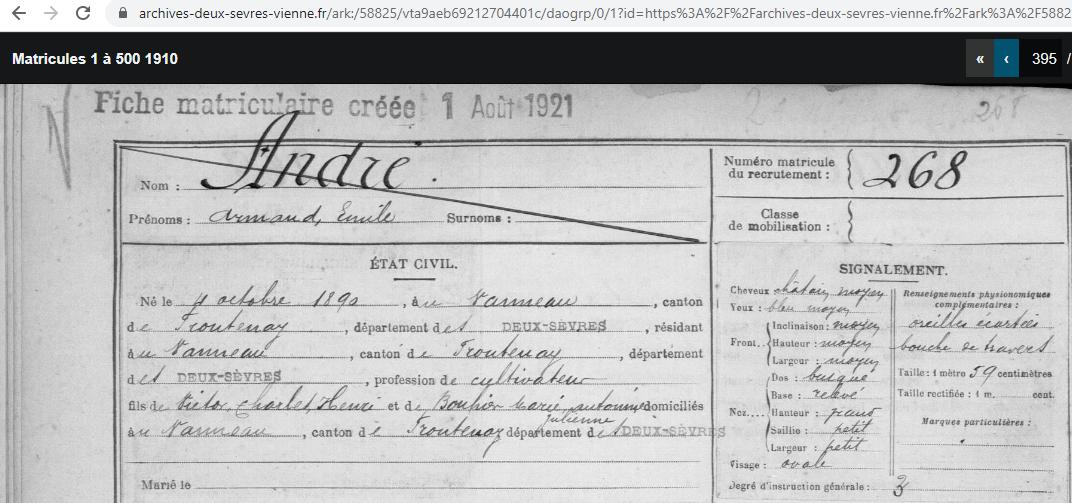 archives-deux-sevres-vienne.fr/ark:/58825/vta9aeb69212704401c/daogrp/0/1?id=https%3A%2F%2Farchives-deux-sevres-vienne.fr%2Fark%3A%2F5882
Matricules 1 à 500 1910
« ‹ 395 /
Fiche matriculaire créée 1 Août 1921
268
N
André.
Nom :
Prénoms : Armand, Emile Surnoms :
Numéro matricule
du recrutement : 268
Classe
de mobilisation :
ÉTAT CIVIL.
Né le 4 octobre 1890, à u Vanneau, canton
de Frontenay, département des DEUX-SÈVRES, résidant
à u Vanneau, canton de Frontenay, département
des DEUX-SÈVRES, profession de cultivateur
fils de Victor, Charles, Henri et de Bouhier Marie, antoinine domiciliés
Julienne
à u Vanneau, canton de Frontenay département des DEUX-SÈVRES
Marié le
SIGNALEMENT.
Cheveux châtain moyen
Yeux : bleu moyen
Front.. Inclinaison : moyen
Hauteur : moyen
Largeur : moyen
Nez.... Dos : busqué
Base : relevé
Hauteur : grand
Saillie : petit
Largeur : petit
Visage : ovale
Degré d'instruction générale : 3
Renseignements physionomiques
complémentaires :
oreilles écartées
bouche de travers
Taille : 1 mètre 59 centimètres
Taille rectifiée : 1 m. cent.
Marques particulières :